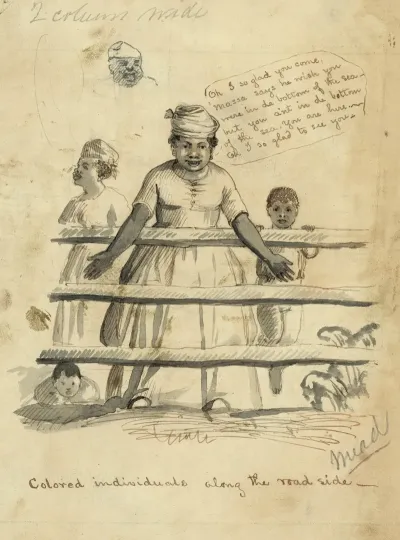 2 column wide
Oh I so glad you come.
Massa says he wish you
were in de bottom of the sea.
but you ant in de bottom
of the sea. You are here —
Oh I so glad to see you.
Mead
Colored individuals along the road side —